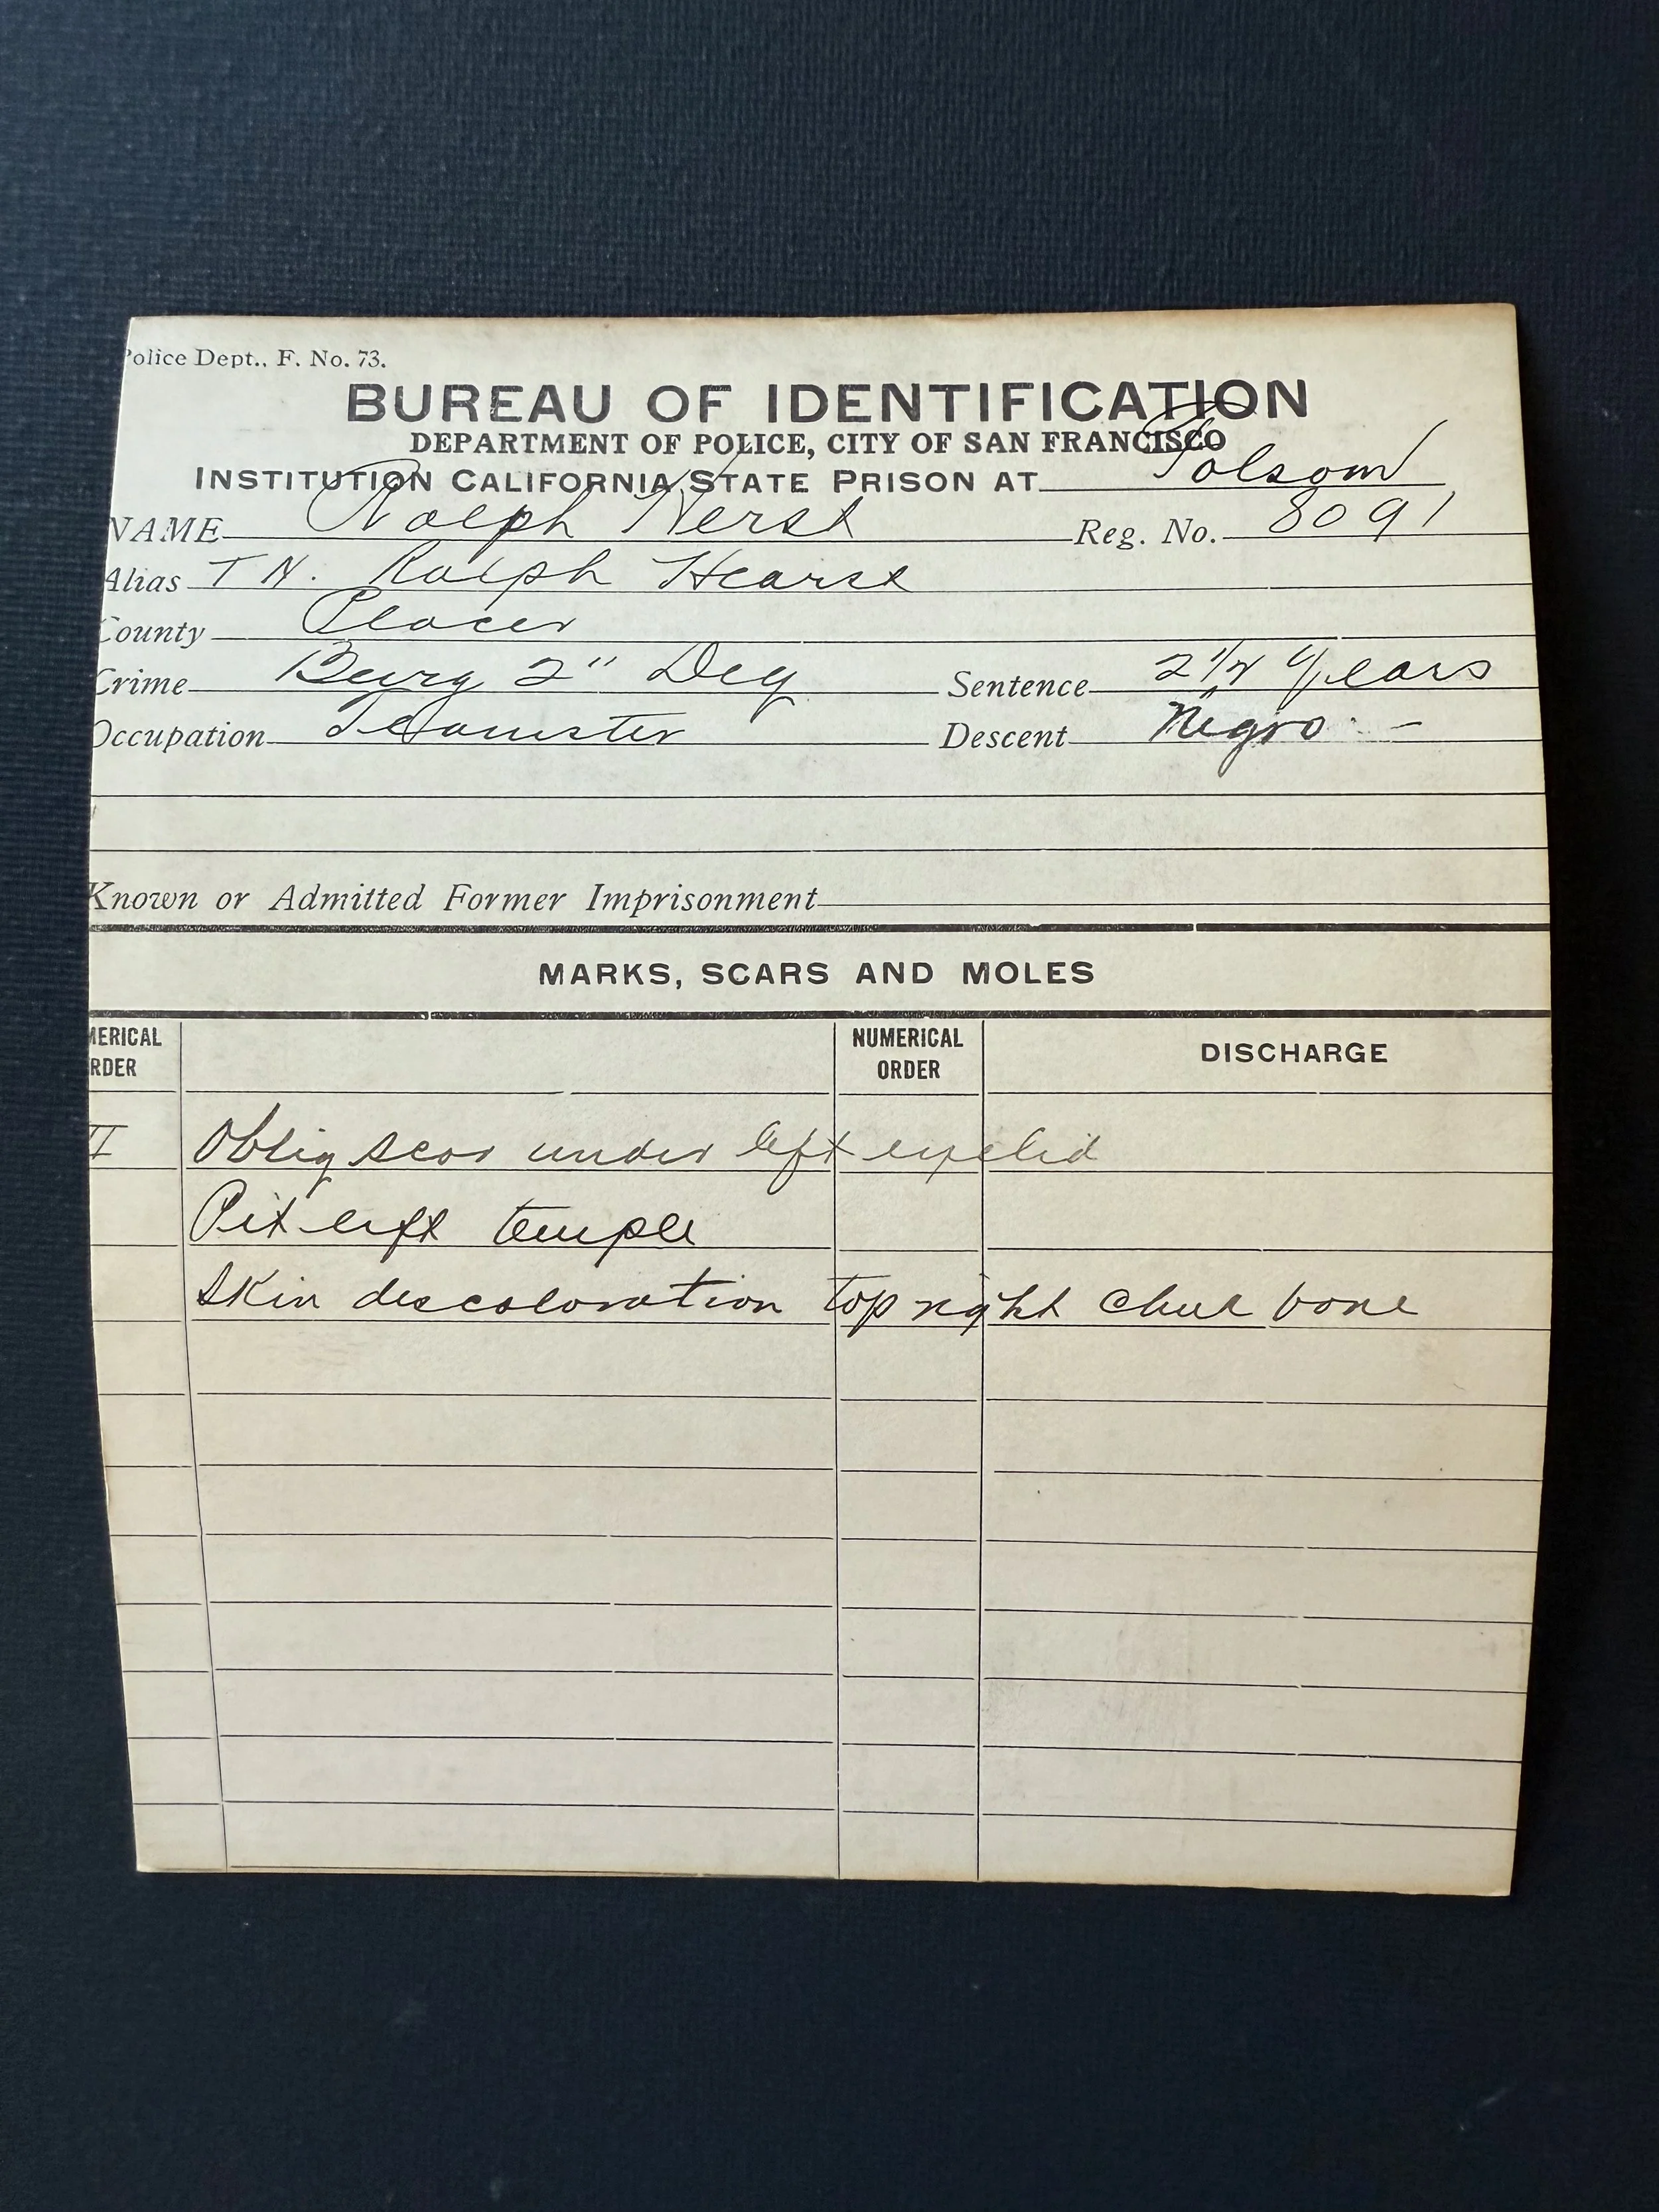 Police Dept., F. No. 73.
BUREAU OF IDENTIFICATION
DEPARTMENT OF POLICE, CITY OF SAN FRANCISCO
INSTITUTION CALIFORNIA STATE PRISON AT Folsom
NAME Ralph Herst Reg. No. 8091
Alias T N. Ralph Hearst
County Placer
Crime Burg 2" Deg Sentence 2 1/2 Years
Occupation Teamster Descent Negro -
Known or Admitted Former Imprisonment
MARKS, SCARS AND MOLES
MERICAL RDER NUMERICAL ORDER DISCHARGE
II Obliq scar under left eyelid
Pit left temple
Skin descoloration top right cheek bone